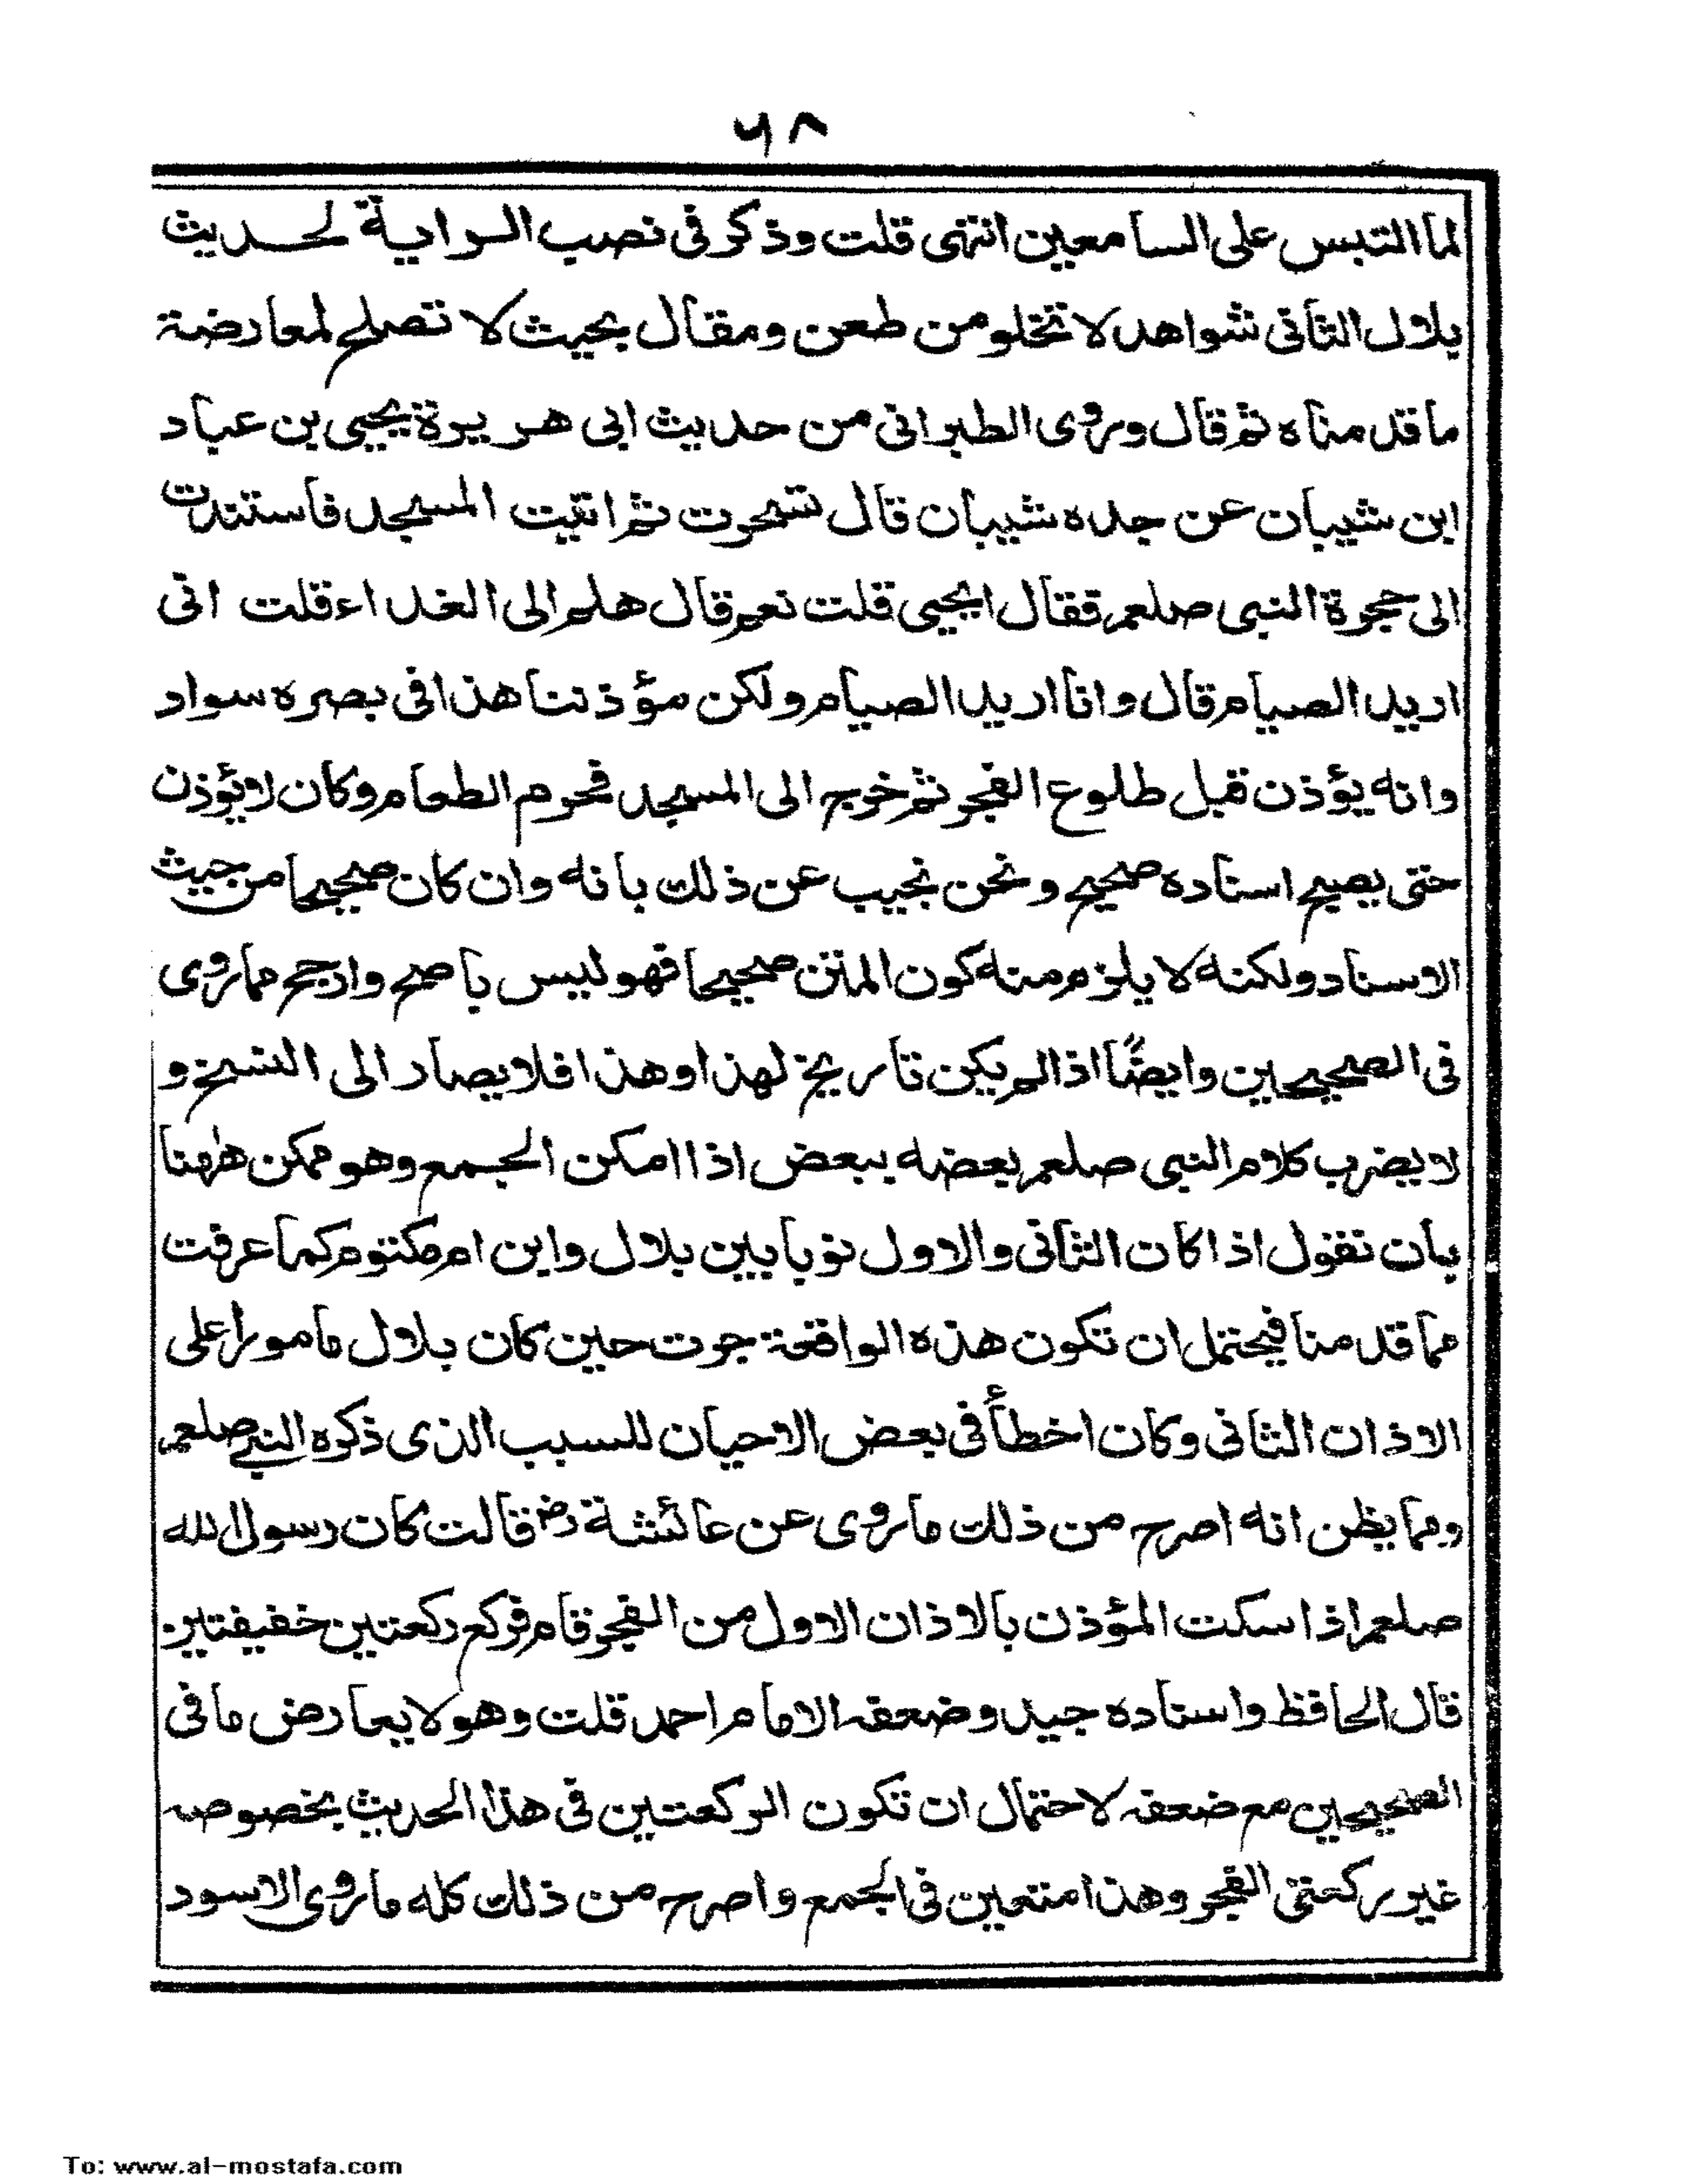 ٦٨
لما التبس على السامعين انتهى قلت وذكر فى نصب الراية لحديث
بلال الثانى شواهد لا تخلو من طعن ومقال بحيث لا تصلح لمعارضة
ما قدمناه ثم قال وروى الطبرانى من حديث ابى هريرة يحيى بن عباد
ابن شيبان عن جده شيبان قال تسحرت ثم اتيت المسجد فاستندت
الى حجرة النبى صلعم فقال ايحيى قلت نعم قال هلم الى الغداء قلت انى
اريد الصيام قال وانا اريد الصيام ولكن مؤذننا هذا فى بصره سواد
وانه يؤذن قبل طلوع الفجر ثم خرج الى المسجد فحرم الطعام وكان لا يؤذن
حتى يصبح اسناده صحيح ونحن نجيب عن ذلك بانه وان كان صحيحا من حيث
الاسناد ولكنه لا يلزم منه كون المتن صحيحا فهو ليس باصح وارجح مما روى
فى الصحيحين وايضًا اذا لم يكن تاريخ لهذا وهذا فلا يصار الى النسخ و
لا يضرب كلام النبى صلعم بعضه ببعض اذا امكن الجمع وهو ممكن ههنا
بان نقول اذا كان الثانى والاول نوبا بين بلال وابن ام مكتوم كما عرفت
مما قدمنا فيحتمل ان تكون هذه الواقعة جرت حين كان بلال مامورا على
الاذان الثانى وكان اخطأ فى بعض الاحيان للسبب الذى ذكره النبى صلعم
ومما يظن انه اصرح من ذلك ما روى عن عائشة رض قالت كان رسول الله
صلعم اذا سكت المؤذن بالاذان الاول من الفجر قام فركع ركعتين خفيفتين
قال الحافظ واسناده جيد وضعفه الامام احمد قلت وهو لا يعارض ما فى
الصحيحين مع ضعفه لاحتمال ان تكون الركعتين فى هذا الحديث بخصوصه
غير ركعتى الفجر وهذا متعين فى الجمع واصرح من ذلك كله ما روى الاسود
To: www.al-mostafa.com